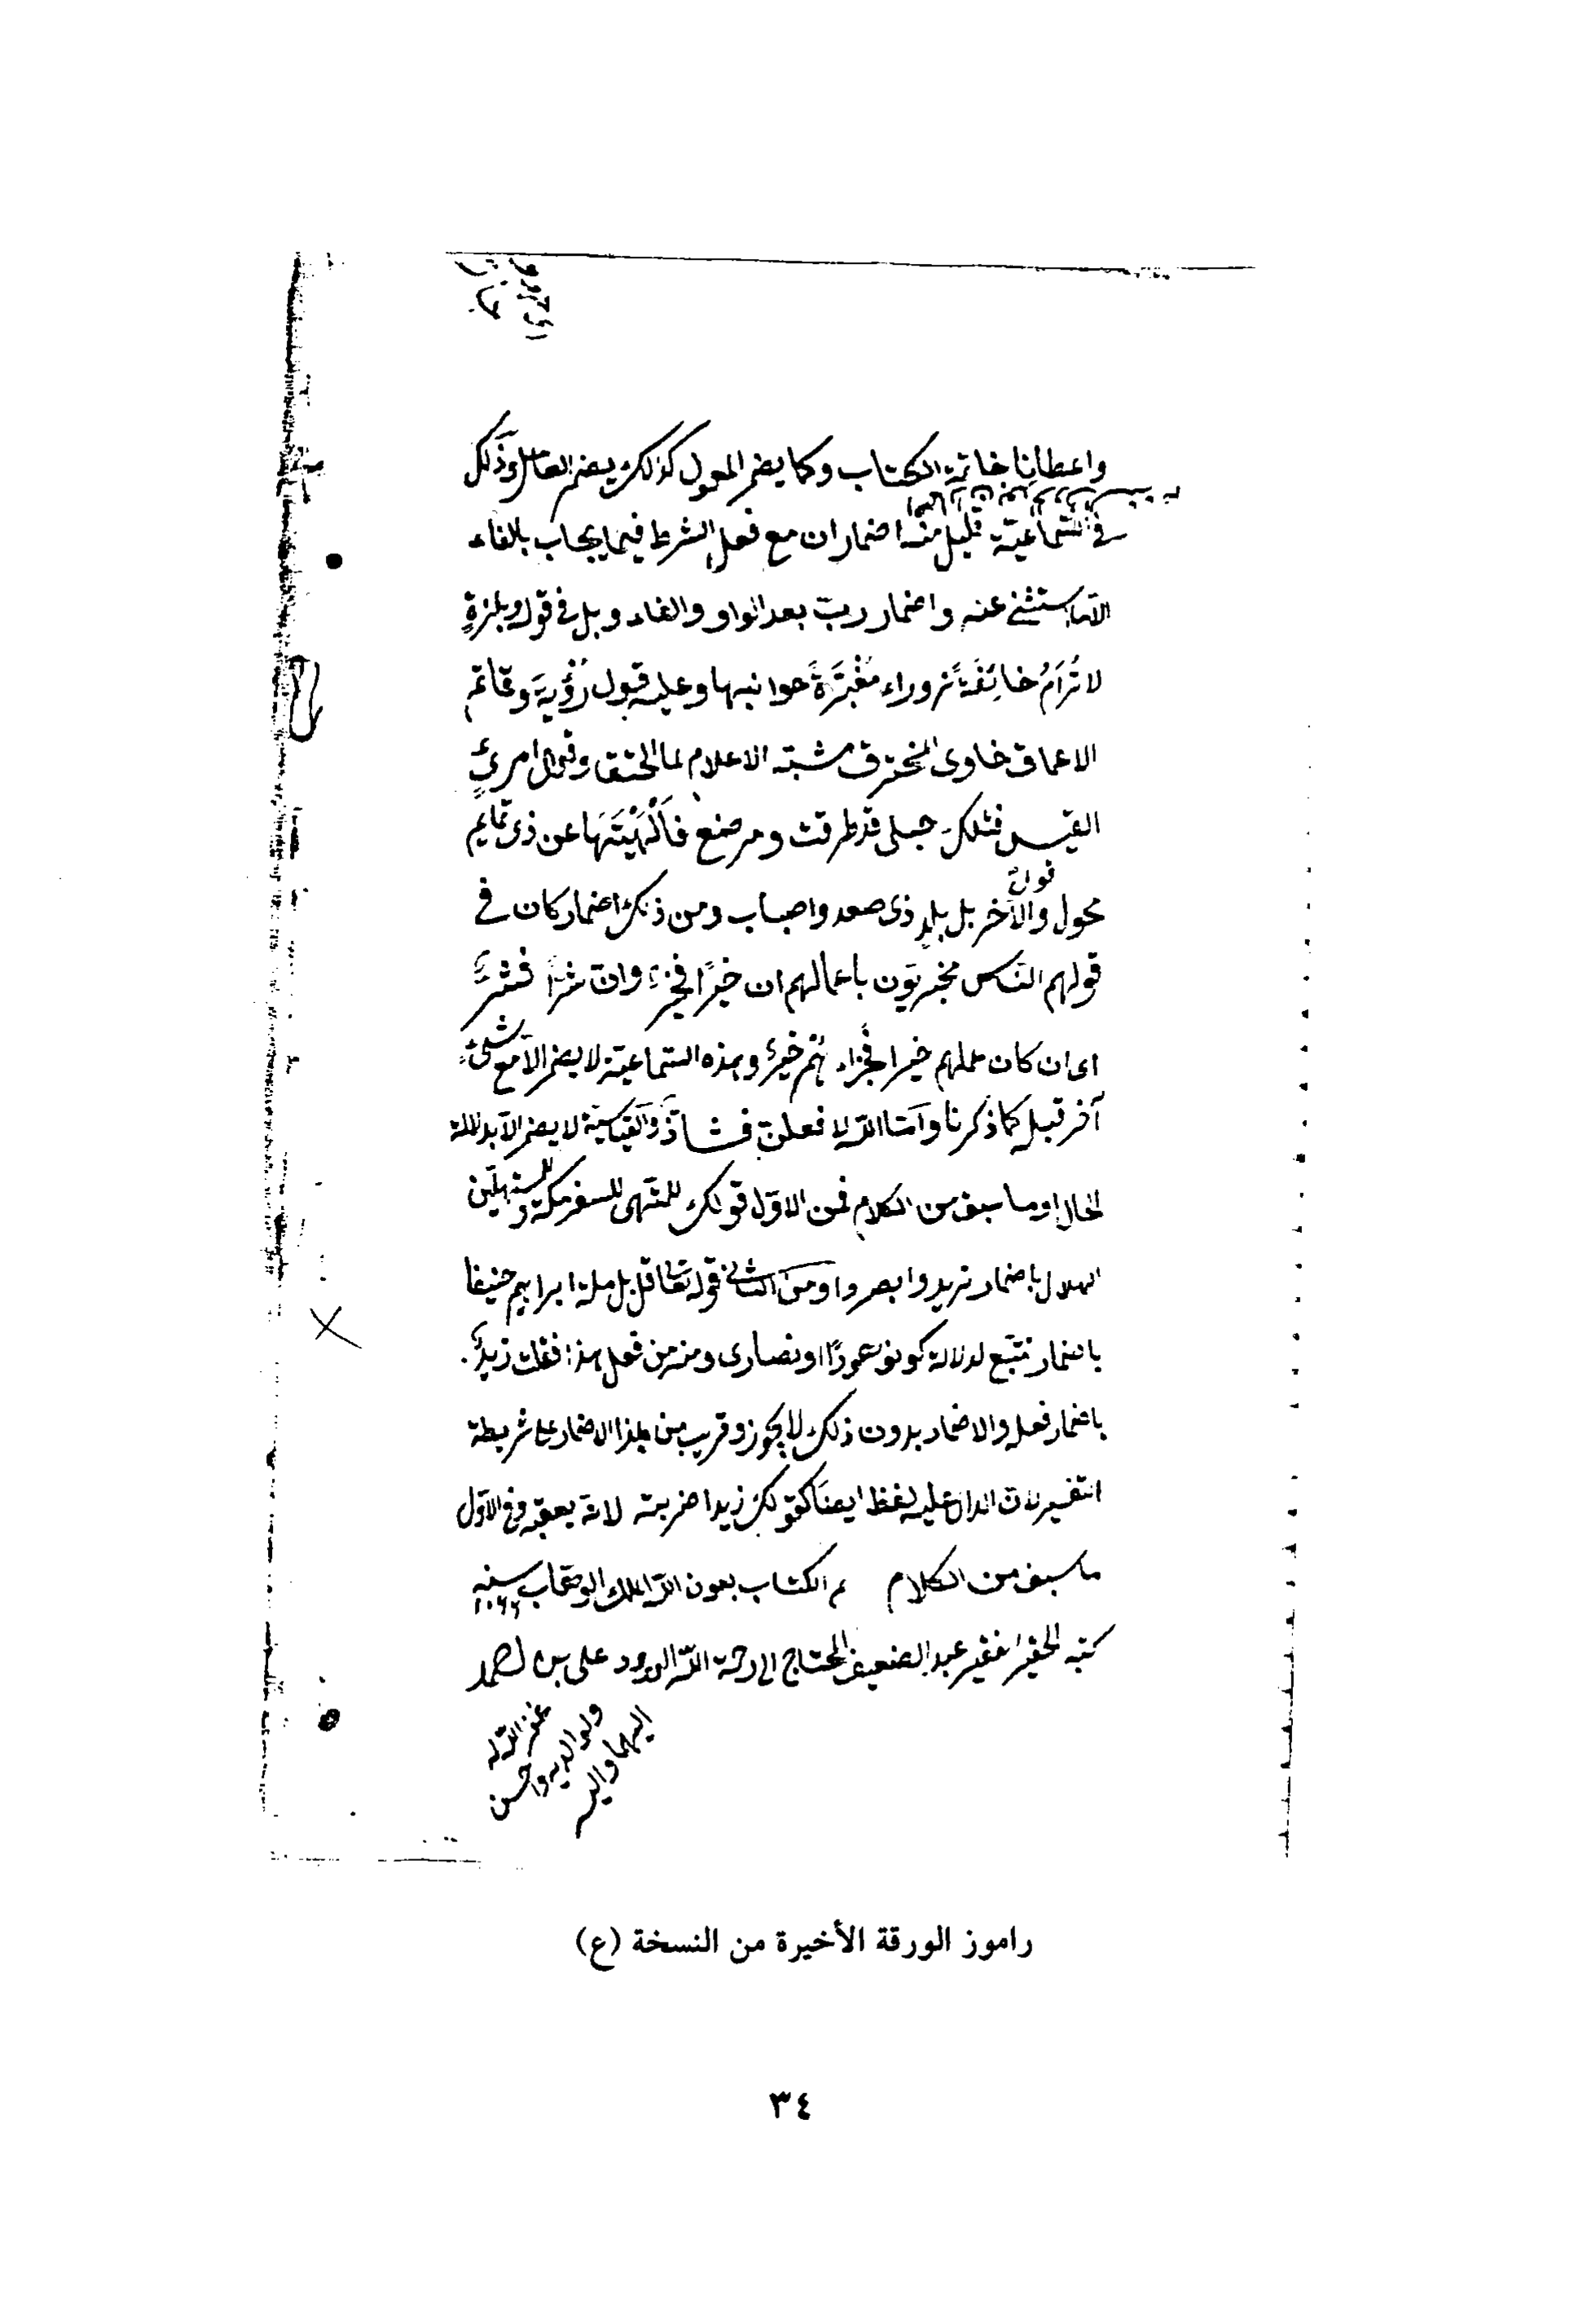 واعطانا خاتمة الكتاب وكما يضمر المعمول كذلك يضمر العامل وذلك
في السّماعيّة قليل منه اضمار ان مع فعل الشرط فيما يجاب بالفاء
الّا ما يستثنى عنه واضمار ربّ بعد الواو والفاء وبل في قوله وبلدةٍ
لا تُرَامُ خائفةً زوراء مُغْبَرَّةً جوانبها وعليه قول رُؤْبَةَ وقاتم
الاعماق خاوى المخترق مشتبه الاعلام لما الخفق وقول امرئ
القيس فمثلك حبلى قد طرقت ومرضع فَأَلْهَيْتَهَا عن ذى تمايم
محول وقول الآخر بل بلدٍ ذى صعد واصباب ومن ذلك اضمار كان في
قولهم النّاس مجزيّون باعمالهم ان خيرًا فخيرٌ وان شرًّا فشرٌّ
اى ان كان عملهم خيرا فجزاءهم خيرٌ وهذه السّماعيّة لا يضمر الّا مع شئ
آخر قبله كما ذكرنا وأمّا اللّه لا فعلنّ فشاذّ والقياسيّة لا يضمر الّا بدلالة
الحال او ما سبق من الكلام فمن الاوّل قولك للمتهيئ للسفر مكة وللمستهلّين
الهلال باضمار تريد وابصروا ومن الثانى قوله تعالى قل بل ملة ابراهيم حنيفا
باضمار نتّبع لدلالة كونوا هودًا او نصارى ومنه من فعل هذا فقلت زيدٌ
باضمار فعله والاضمار بدون ذلك لا يجوز وقريب من هذا الاضمار على شريطة
التفسير لانّ الدال عليه لفظ ايضًا كقولك زيدا ضربته لانّه يعقبه وفى الاوّل
ما سبق من الكلام تم الكتاب بعون اللّه الملك الوهّاب سنه
كتبه الحقير الفقير عبد الضعيف المحتاج الى رحمة اللّه الودود على بن احمد
غفر اللّه له
ولوالديه واحسن
اليهما واليه
راموز الورقة الأخيرة من النسخة (ع)
٣٤